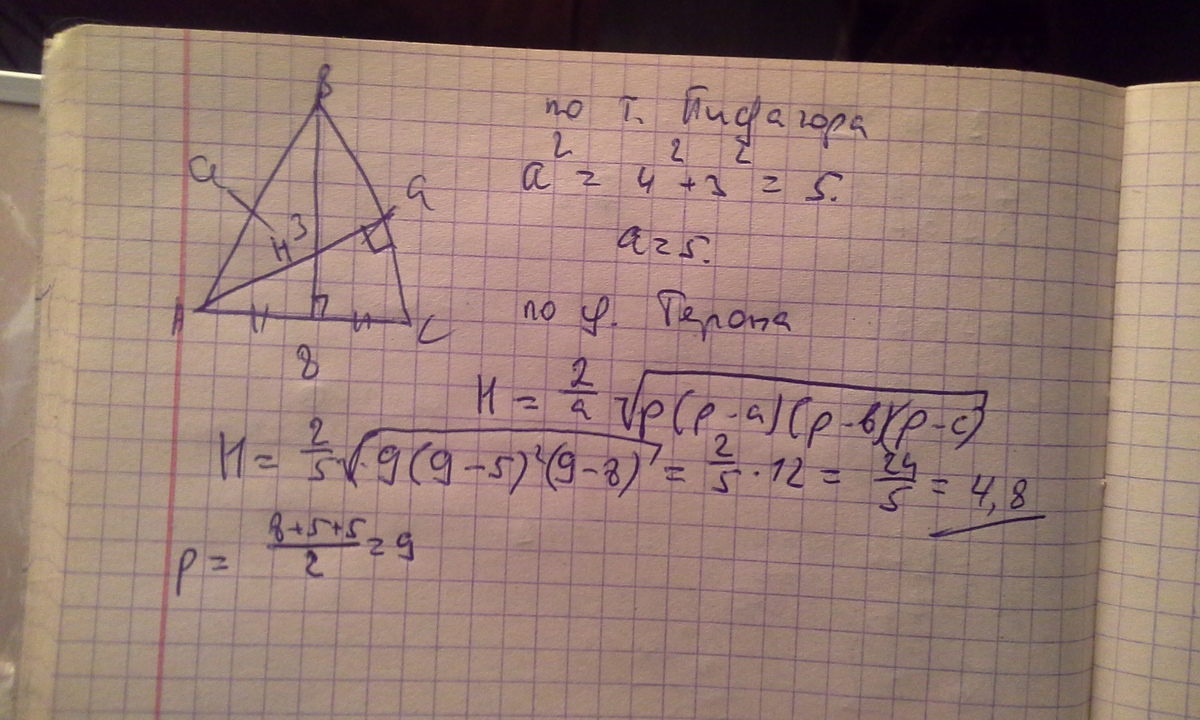 B
a
a
3
H
A
C
8
по т. Пифагора
a² = 4² + 3² = 5.
a = 5.
по ф. Герона
H = 2/a √p(p-a)(p-в)(p-c)
H = 2/5 √9(9-5)²(9-8) = 2/5 · 12 = 24/5 = 4,8
p = (8+5+5)/2 = 9